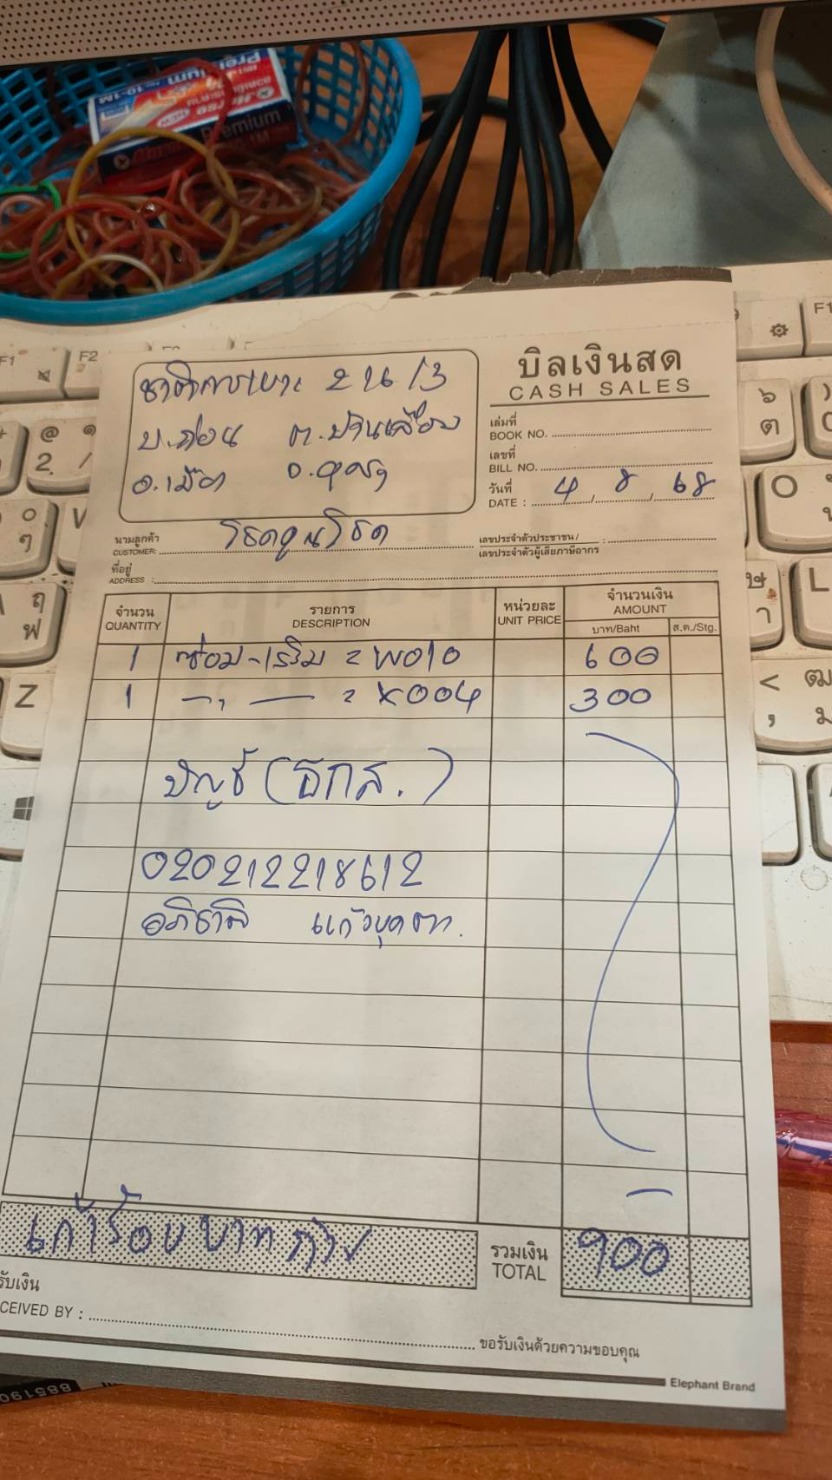 Premium
ชาติการเบาะ 216/3
บ.ก่อน ต.บ้านเลื่อม
อ.เมือง จ.อุดร
บิลเงินสด
CASH SALES
เล่มที่
BOOK NO.
เลขที่
BILL NO.
วันที่
DATE : 4 / 8 / 68
นามลูกค้า
CUSTOMER: โชคคูนโชค
เลขประจำตัวประชาชน / :
เลขประจำตัวผู้เสียภาษีอากร
ที่อยู่
ADDRESS :
จำนวน รายการ หน่วยละ จำนวนเงิน
QUANTITY DESCRIPTION UNIT PRICE AMOUNT
บาท/Baht ส.ต./Stg.
1 ซ่อม-เสริม = W010 600
1 —,, — = X004 300
บัญชี (ธกส.)
020212218612
อภิชาติ
เก้าร้อยบาทถ้วน
รวมเงิน
TOTAL 900
รับเงิน
CEIVED BY :
ขอรับเงินด้วยความขอบคุณ
Elephant Brand